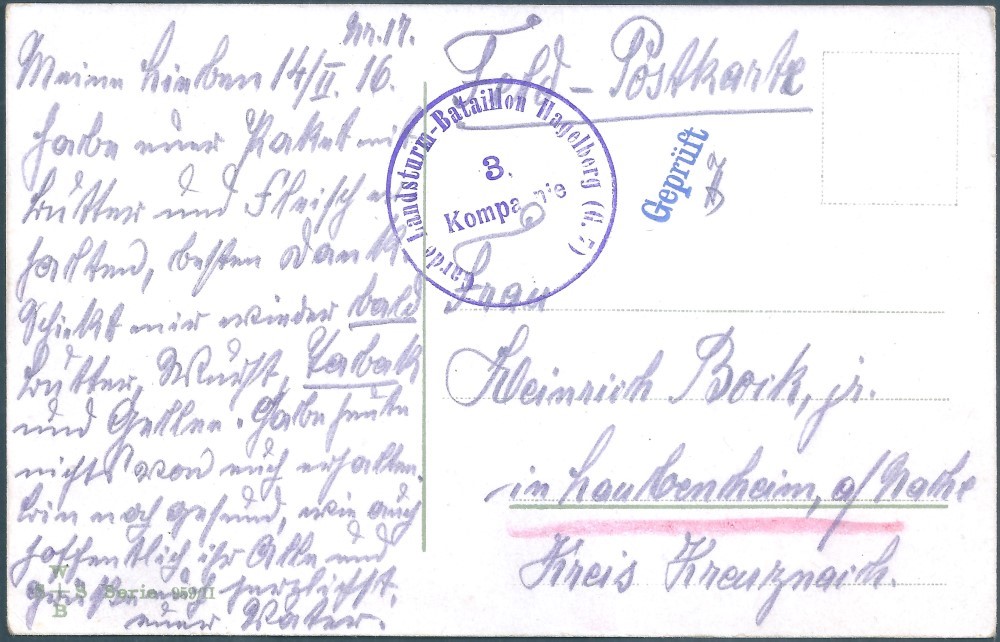 Nr. 17.
Meine Lieben 14/II. 16.
habe euer Paket mit
Butter und Fleisch er
halten, besten Dank.
Schickt mir wieder bald
Butter, Wurst, Tabak
und Gellee. Habe heute
nichts von euch erhalten.
Bin noch gesund, wie auch
hoffentlich ihr Alle und
grüße euch herzlichst,
euer Vater.
W
S + S Serie 959/II
B
Feld-Postkarte
Garde Landsturm-Bataillon Hagelberg (G. 5)
3.
Kompanie
Geprüft
Frau
Heinrich Bock, jr.
in Laubenheim, a/Nahe
Kreis Kreuznach.